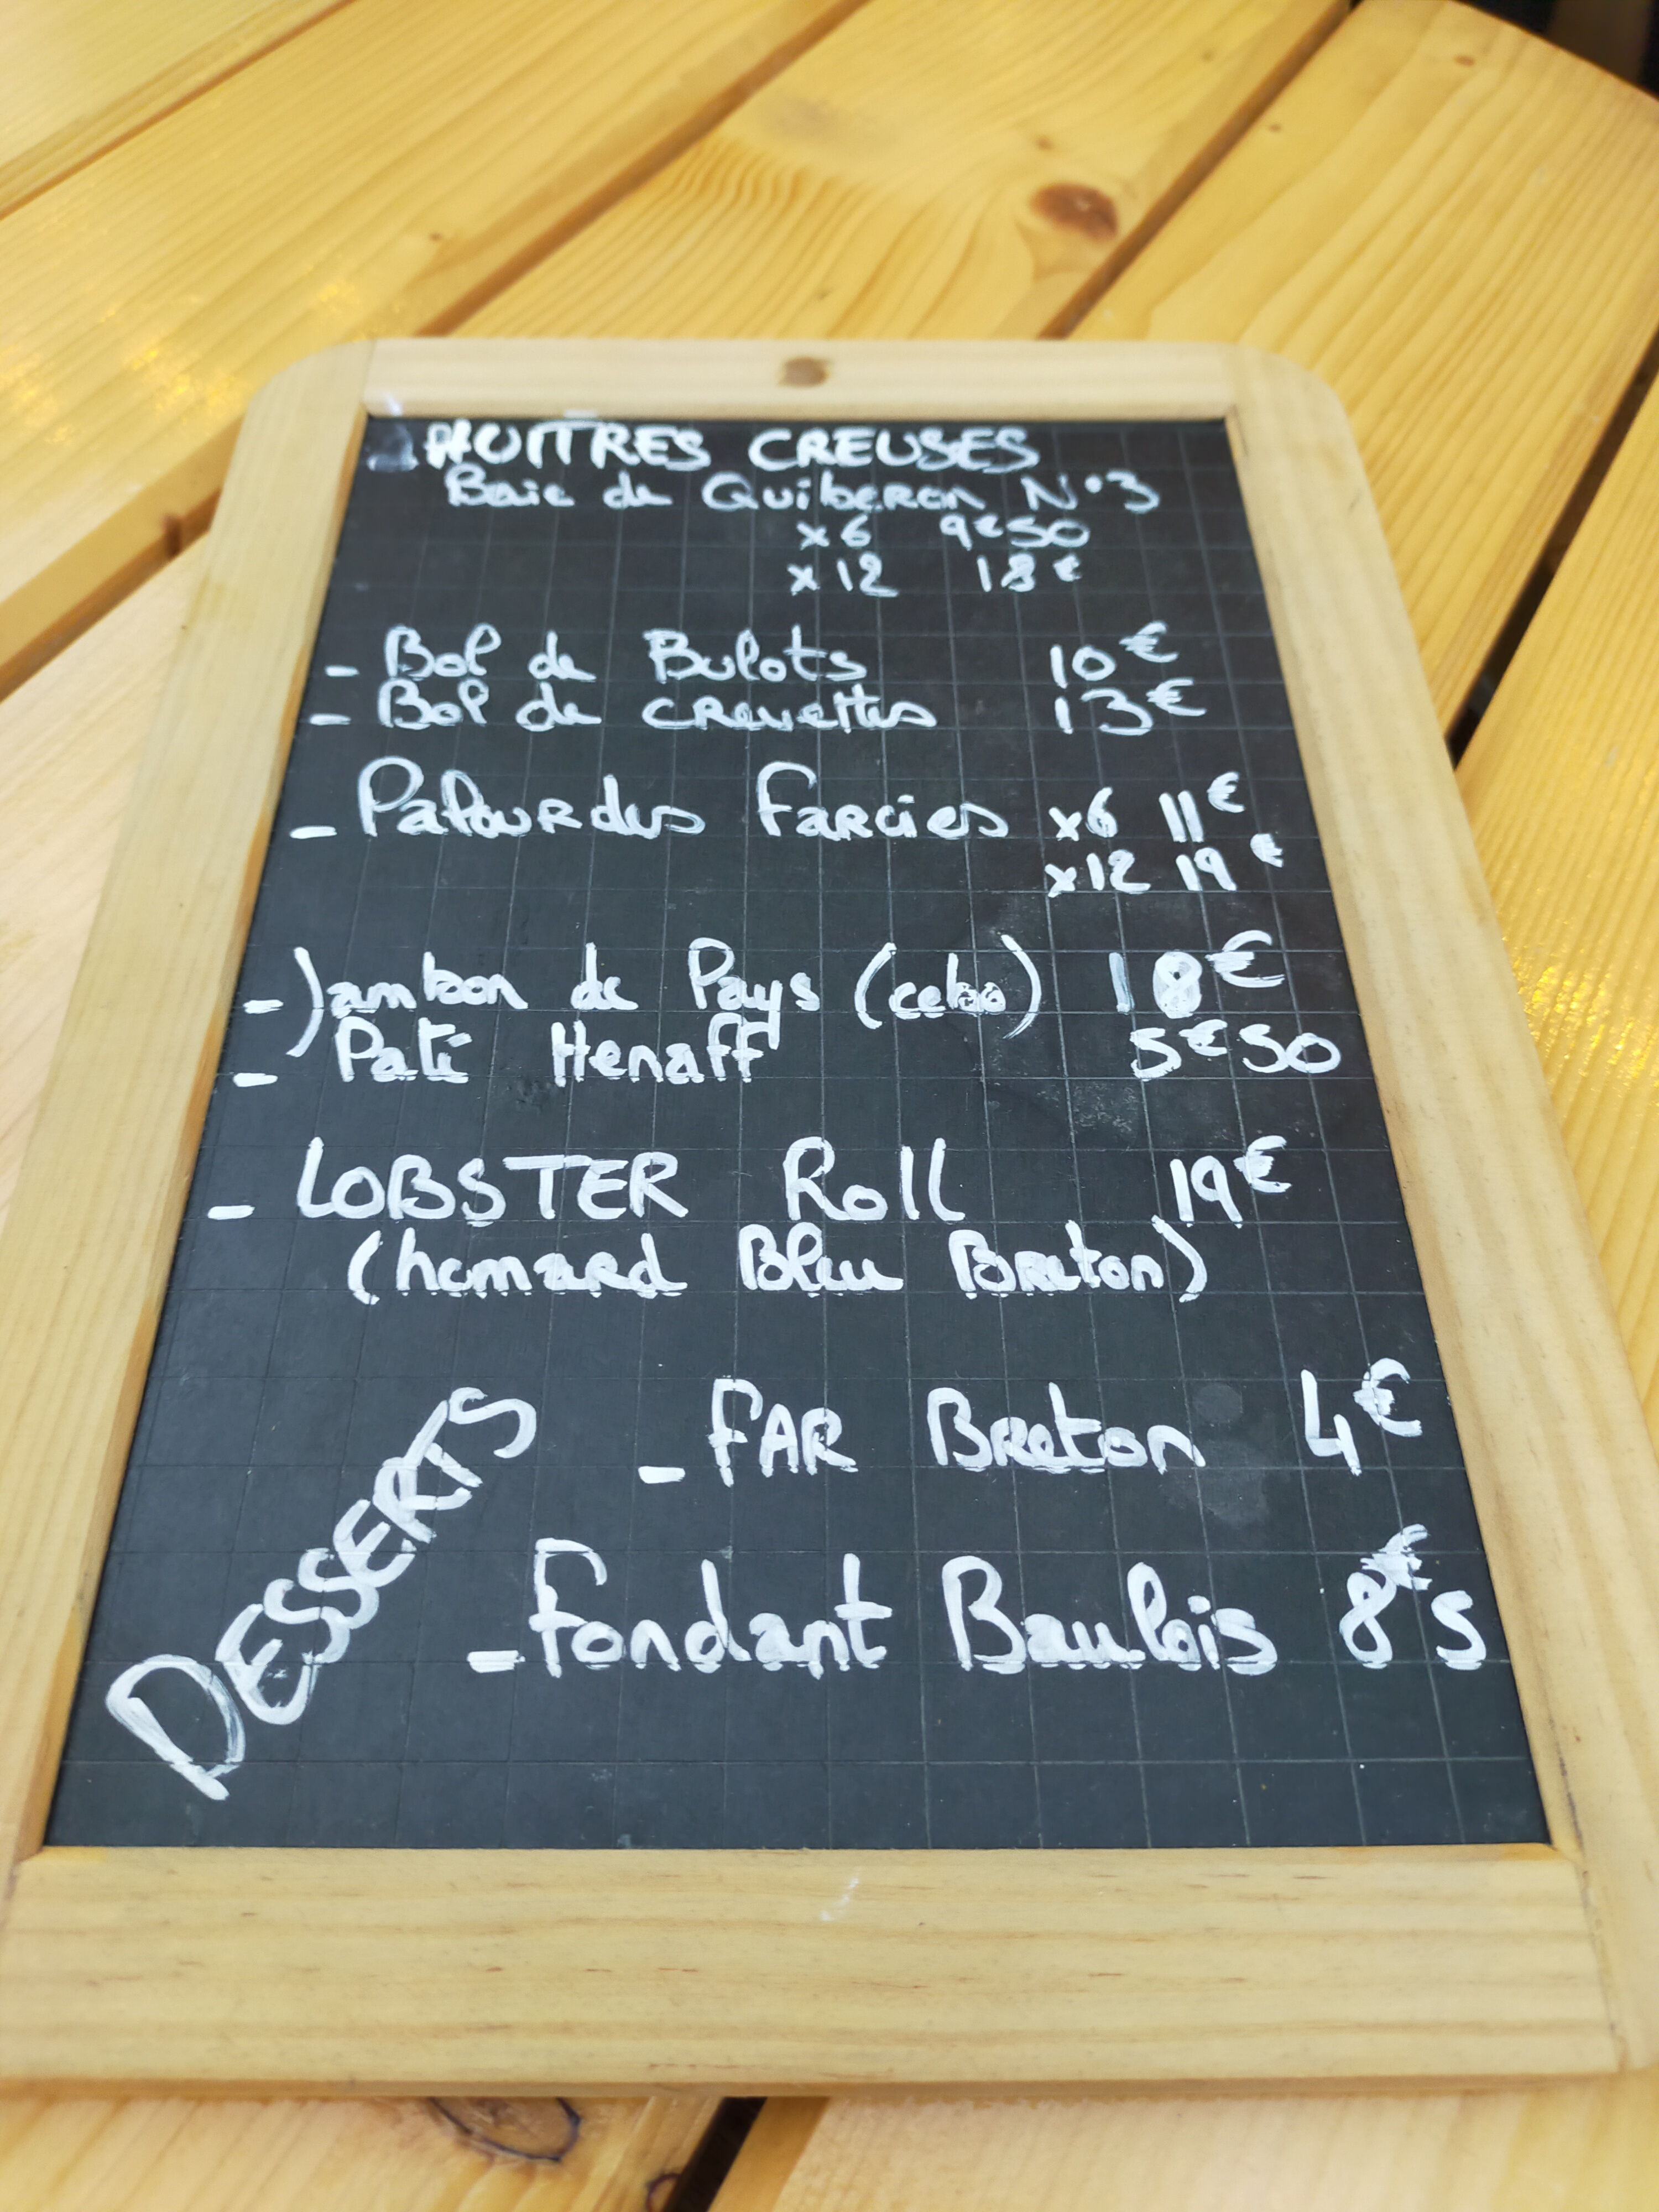 HUITRES CREUSES
Baie de Quiberon N°3
x6 9€50
x12 18€
- Bol de Bulots 10€
- Bol de crevettes 13€
- Palourdes Farcies x6 11€
x12 19€
- Jambon de Pays (cebo) 18€
- Paté Henaff 5€50
- LOBSTER Roll 19€
(homard Bleu Breton)
DESSERTS
- FAR Breton 4€
- Fondant Baulois 8€5